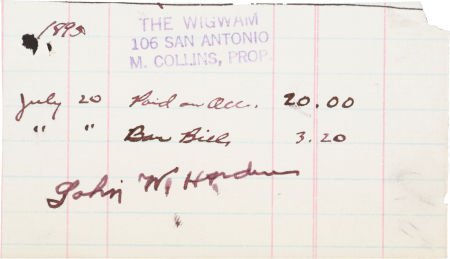 1895
THE WIGWAM
106 SAN ANTONIO
M. COLLINS, PROP.
July 20 Paid on Acc. 20.00
" " Bar Bill 3.20
John W. Hardin